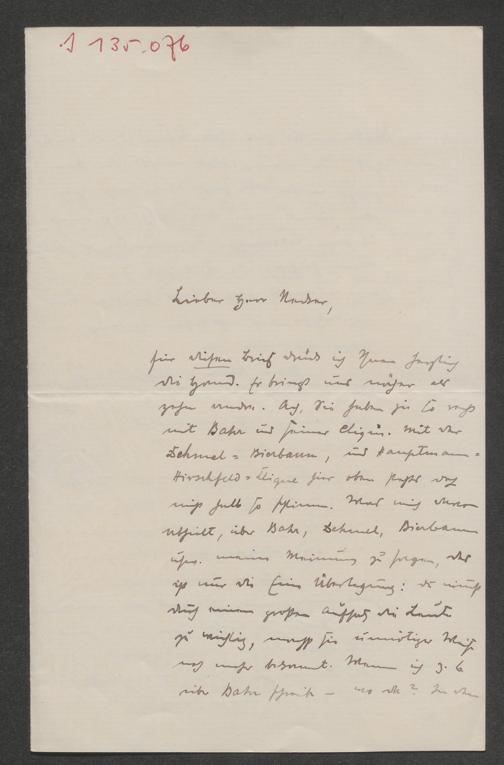 J 135.076
Lieber Herr Necker,
für diesen Brief drück ich Ihnen herzlich
die Hand. Er bringt uns näher als
zehn andre. Ach, Sie haben ja so recht
mit Bahr und seiner Clique. Mit der
Dehmel-Bierbaum, und Hauptmann-
Hirschfeld-Clique hier oben steht es
nicht halb so schlimm. Was mich davon
abhielt, über Bahr, Dehmel, Bierbaum
meine Meinung zu sagen, das
ist nur die Eine Überlegung: du nimmst
durch einen großen Aufsatz die Leute
zu wichtig, machst sie unnötiger Weise
noch mehr bekannt. Wenn ich z. B
über Bahr schreibe – wo